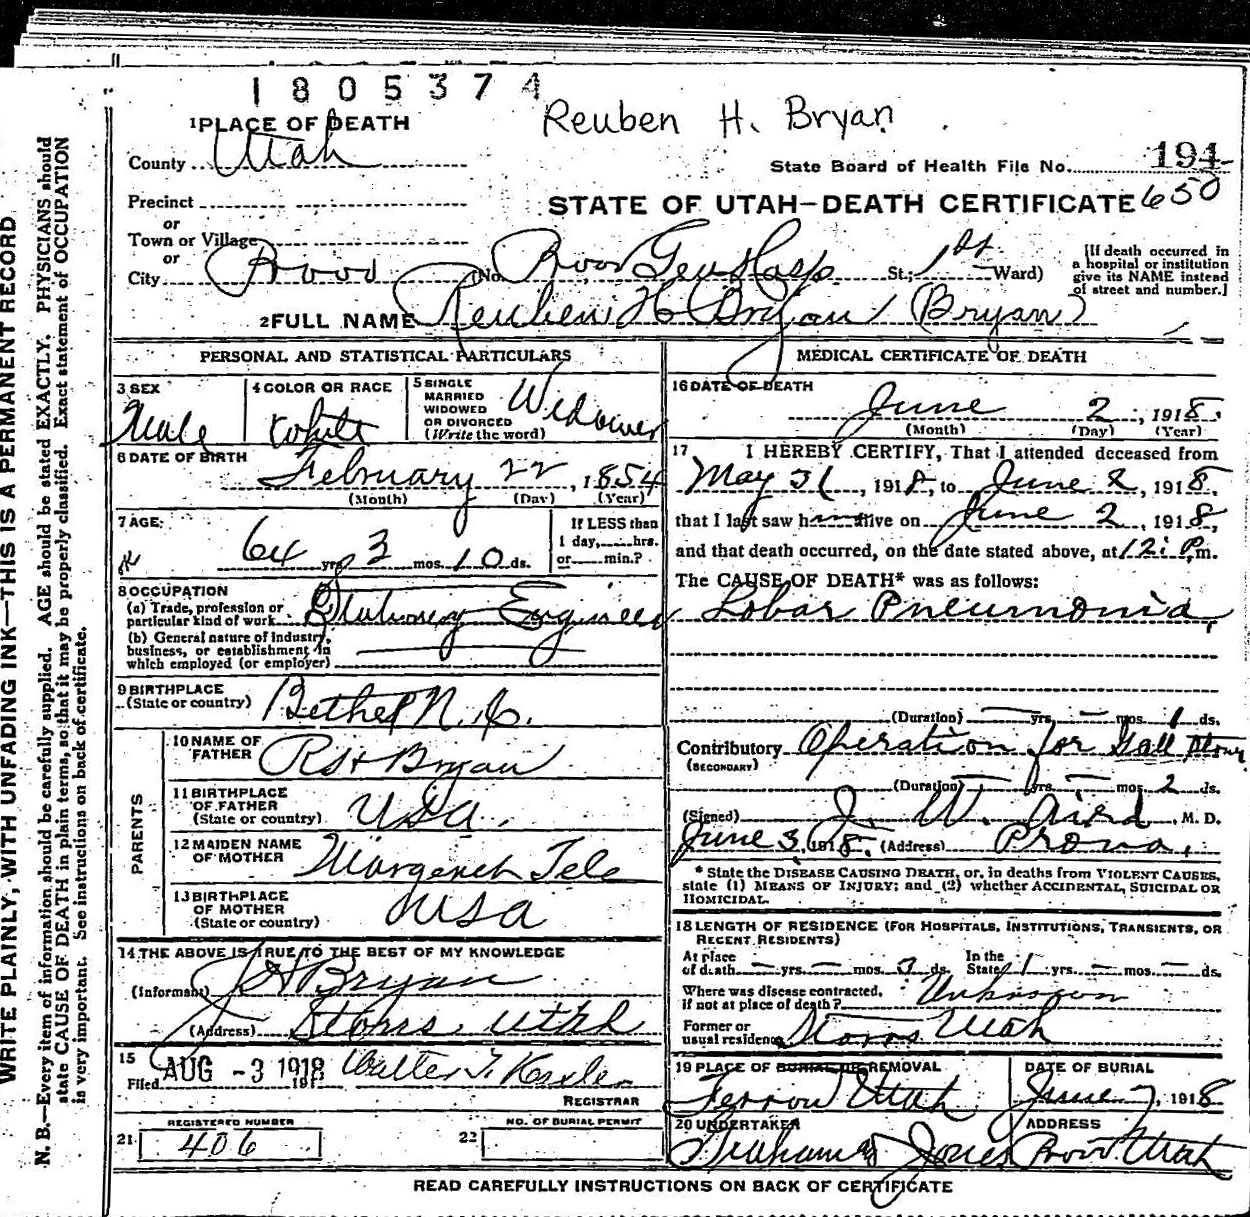 1805374
Reuben H. Bryan
1 PLACE OF DEATH
County Utah
State Board of Health File No. 194
650
Precinct
STATE OF UTAH—DEATH CERTIFICATE
or
Town or Village
or
City Provo (No. Provo Gen Hosp St.; 1st Ward)
[If death occurred in a hospital or institution give its NAME instead of street and number.]
2 FULL NAME Reuben H Bryan (Bryan)
PERSONAL AND STATISTICAL PARTICULARS
3 SEX Male
4 COLOR OR RACE White
5 SINGLE MARRIED WIDOWED OR DIVORCED (Write the word) Widower
6 DATE OF BIRTH February 22, 1854
(Month) (Day) (Year)
7 AGE: 64 yrs 3 mos. 10 ds.
If LESS than 1 day, hrs. or min.?
8 OCCUPATION
(a) Trade, profession or particular kind of work Stationary Engineer
(b) General nature of industry, business, or establishment in which employed (or employer)
9 BIRTHPLACE (State or country) Bethel N. C.
PARENTS
10 NAME OF FATHER Bryan
11 BIRTHPLACE OF FATHER (State or country) USA.
12 MAIDEN NAME OF MOTHER
13 BIRTHPLACE OF MOTHER (State or country) USA
14 THE ABOVE IS TRUE TO THE BEST OF MY KNOWLEDGE
(Informant) Bryan
(Address) Storrs, Utah
15
Filed AUG -3 1918 Walter T.
REGISTRAR
REGISTERED NUMBER
21 406
NO. OF BURIAL PERMIT
22
MEDICAL CERTIFICATE OF DEATH
16 DATE OF DEATH June 2, 1918.
(Month) (Day) (Year)
17 I HEREBY CERTIFY, That I attended deceased from
May 31, 1918, to June 2, 1918,
that I last saw h alive on June 2, 1918,
and that death occurred, on the date stated above, at 12: P.m.
The CAUSE OF DEATH* was as follows:
Lobar Pneumonia,
(Duration) — yrs. — mos. 1 ds.
Contributory (SECONDARY) Operation for Gall Stones
(Duration) — yrs. — mos. 2 ds.
(Signed) J. W. Aird, M. D.
June 3, 1918. (Address) Provo,
* State the DISEASE CAUSING DEATH, or, in deaths from VIOLENT CAUSES, state (1) MEANS OF INJURY; and (2) whether ACCIDENTAL, SUICIDAL OR HOMICIDAL.
18 LENGTH OF RESIDENCE (FOR HOSPITALS, INSTITUTIONS, TRANSIENTS, OR RECENT RESIDENTS)
At place of death — yrs. — mos. 3 ds. In the State 1 yrs. — mos. — ds.
Where was disease contracted, if not at place of death? Unknown
Former or usual residence Storrs Utah
19 PLACE OF BURIAL OR REMOVAL Ferron Utah
DATE OF BURIAL June 7, 1918
20 UNDERTAKER Graham & Jones
ADDRESS Provo Utah
READ CAREFULLY INSTRUCTIONS ON BACK OF CERTIFICATE
WRITE PLAINLY, WITH UNFADING INK—THIS IS A PERMANENT RECORD
N. B.—Every item of information should be carefully supplied. AGE should be stated EXACTLY. PHYSICIANS should
state CAUSE OF DEATH in plain terms, so that it may be properly classified. Exact statement of OCCUPATION
is very important. See instructions on back of certificate.